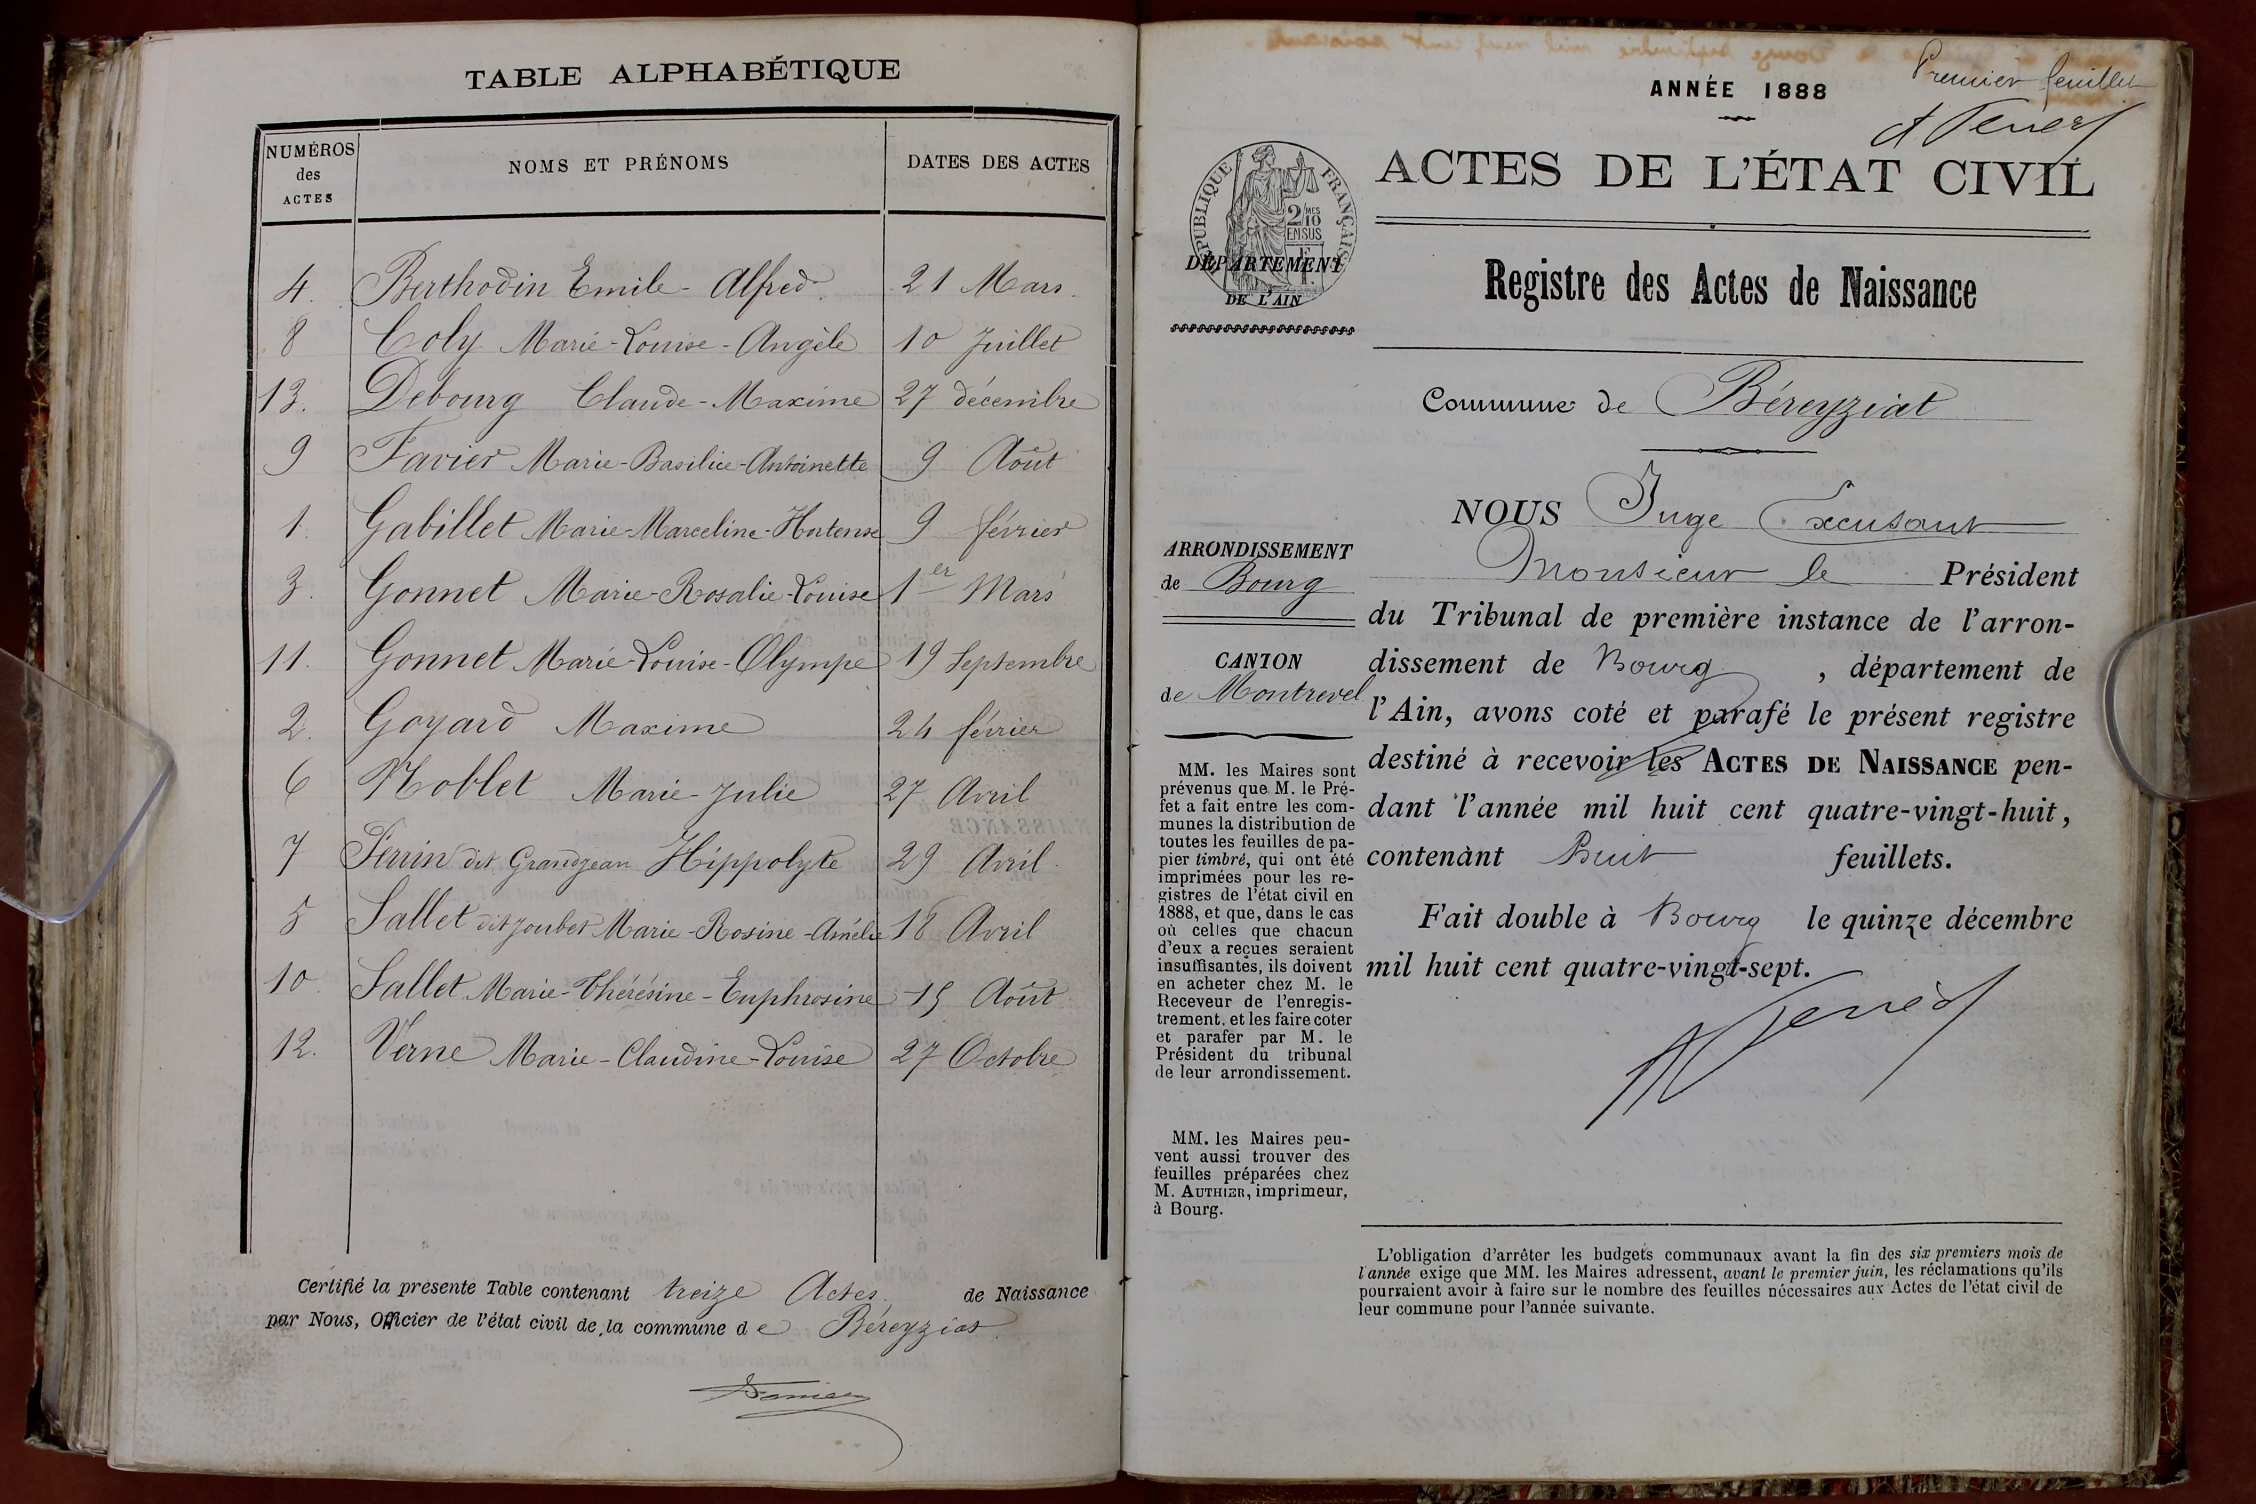 TABLE ALPHABÉTIQUE
NUMÉROS des ACTES
NOMS ET PRÉNOMS
DATES DES ACTES
4. Berthodin Emile-Alfred. 21 Mars.
8 Coly Marie-Louise-Angèle 10 Juillet
13. Debourg Claude-Maxime 27 décembre
9 Favier Marie-Basilice-Antoinette 9 Août
1. Gabillet Marie-Marceline-Hortense 9 février
3. Gonnet Marie-Rosalie-Louise 1er Mars
11. Gonnet Marie-Louise-Olympe 19 Septembre
2. Goyard Maxime 24 février
6 Noblet Marie-Julie 27 Avril
7 Perrin dit Grandjean Hippolyte 29 Avril.
5 Sallet dit Joubet Marie-Rosine-Amélie 18 Avril
10. Sallet Marie-Thérésine-Euphrosine 15 Août
12. Verne Marie-Claudine-Louise 27 Octobre
Certifié la présente Table contenant treize Actes. de Naissance
par Nous, Officier de l'état civil de la commune de Béreyziat.
Premier feuillet
ANNÉE 1888
ACTES DE L'ÉTAT CIVIL
RÉPUBLIQUE FRANÇAISE
2/10 MES
EN SUS
DÉPARTEMENT
DE L'AIN
Registre des Actes de Naissance
Commune de Béreyziat
NOUS Juge Excusant
Monsieur le Président
du Tribunal de première instance de l'arron-
dissement de Bourg , département de
l'Ain, avons coté et parafé le présent registre
destiné à recevoir les ACTES DE NAISSANCE pen-
dant l'année mil huit cent quatre-vingt-huit,
contenant Huit feuillets.
Fait double à Bourg le quinze décembre
mil huit cent quatre-vingt-sept.
ARRONDISSEMENT
de Bourg
CANTON
de Montrevel
MM. les Maires sont
prévenus que M. le Pré-
fet a fait entre les com-
munes la distribution de
toutes les feuilles de pa-
pier timbré, qui ont été
imprimées pour les re-
gistres de l'état civil en
1888, et que, dans le cas
où celles que chacun
d'eux a reçues seraient
insuffisantes, ils doivent
en acheter chez M. le
Receveur de l'enregis-
trement, et les faire coter
et parafer par M. le
Président du tribunal
de leur arrondissement.
MM. les Maires peu-
vent aussi trouver des
feuilles préparées chez
M. AUTHIER, imprimeur,
à Bourg.
L'obligation d'arrêter les budgets communaux avant la fin des six premiers mois de
l'année exige que MM. les Maires adressent, avant le premier juin, les réclamations qu'ils
pourraient avoir à faire sur le nombre des feuilles nécessaires aux Actes de l'état civil de
leur commune pour l'année suivante.